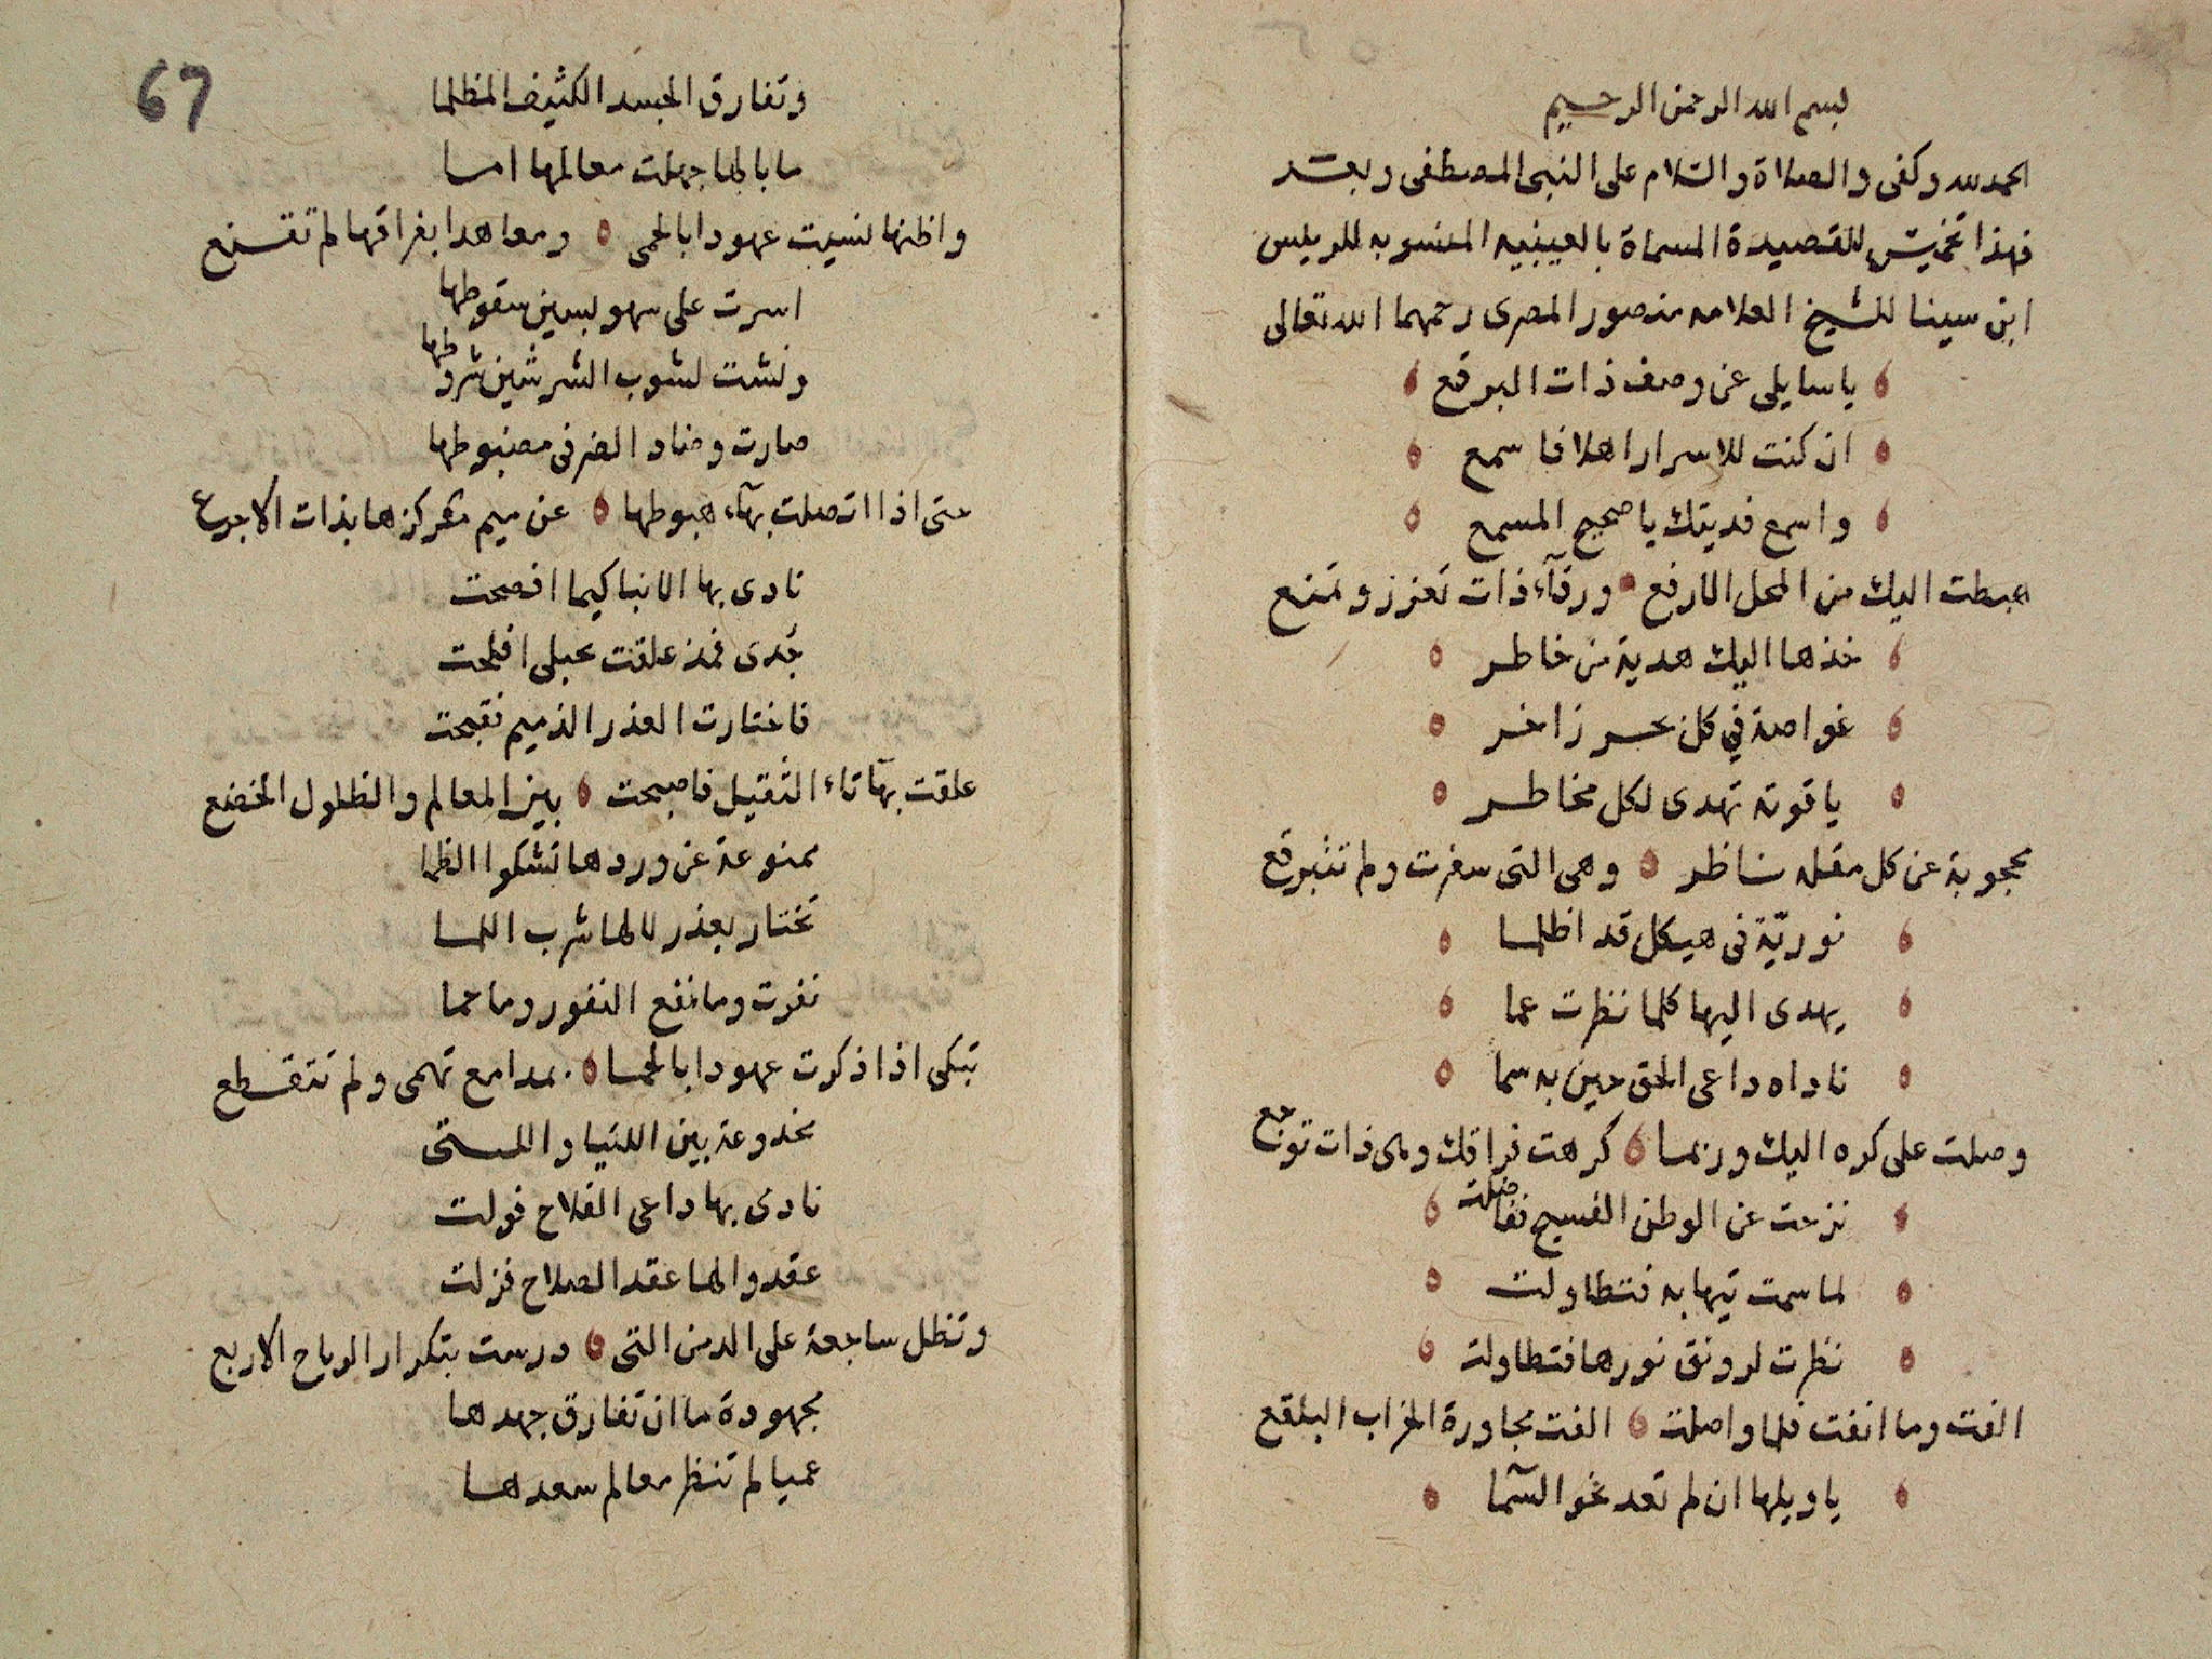 بسم الله الرحمن الرحيم
الحمد لله وكفى والصلاة والسلام على النبي المصطفى وبعد
فهذا تخميس للقصيدة المسماة بالعينيه المنسوبه للريس
ابن سينا للشيخ العلامه منصور المصرى رحمهما الله تعالى
ياسايلى عن وصف ذات البرقع
ان كنت للاسرار اهلا فاسمع
واسمع فديتك يا صحيح المسمع
هبطت اليك من المحل الارفع ورقآء ذات تعزز وتمنع
خذها اليك هدية من خاطر
غواصة في كل بحر زاخر
ياقوتة تهدى لكل مخاطر
محجوبة عن كل مقلة ناظر وهى التى سفرت ولم تتبرقع
نوريّة فى هيكل قد اظلما
يهدى اليها كلما نظرت عما
ناداه داعى الحق حين به سما
وصلت على كره اليك وربما كرهت فراقك وهى ذات توجع
نزحت عن الوطن الفسيح تفاضلت
لما سمت تيها به فتطاولت
نظرت لرونق نورها فتطاولت
الفت وما انفت فلما واصلت الفت مجاورة الخراب البلقع
ياويلها ان لم تعد نحو السّما
67
وتفارق الجسد الكثيف المظلما
ما بالها جهلت معالمها امسا
واظنها نسيت عهودا بالحمى ومعاهدا بفراقها لم تقنع
اسرت على سهو بسين سقوطها
ونشت لشوب الشر شين شروطها
صارت وضاد الضر فى مضبوطها
حتى اذا اتصلت بهآء هبوطها عن ميم مركزها بذات الاجرع
نادى بها الانبا كيما افصحت
جُدى فمذ علقت بحبلى افلحت
فاختارت العذر الذميم فقبحت
علقت بها ثاء الثقيل فاصبحت بين المعالم والطلول الخضع
ممنوعة عن وردها تشكوا الظما
تختار بعذر لالها شرب اللما
نفرت وما نفع النفور وما حما
تبكى اذا ذكرت عهودا بالحما بمدامع تهمى ولم تتقطع
مخدوعة بين اللتيا والـتى
نادى بها داعى الفلاح فولت
عقدوا لها عقد الصلاح فزلت
وتظل ساجعة على الدمن التى درست بتكرار الرياح الاربع
مجهودة ما ان تفارق جهدها
عميا لم تنظر معالم سعدها